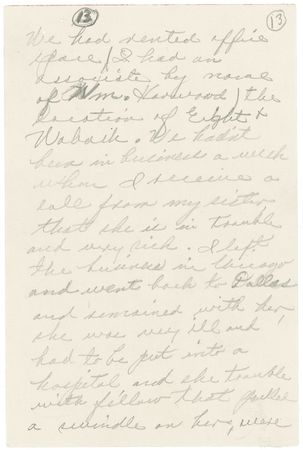 13
13
We had rented office
space / I had an
associate by name
of Wm. Harwood / the
location of Eight &
Wabash. We hadn't
been in business a week
when I receive a
call from my sister
that she is in trouble
and very sick. I left
the business in Chicago
and went back to Dallas
and remained with her,
she was very ill and
had to be put into a
hospital and she trouble
with fellow that pulled
a swindle on her, were